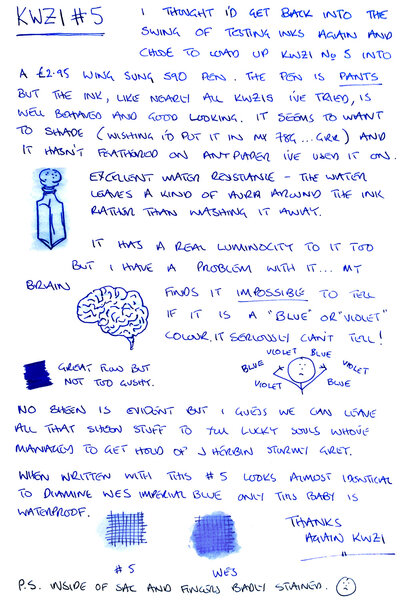 KWZI #5
I THOUGHT I'D GET BACK INTO THE
SWING OF TESTING INKS AGAIN AND
CHOSE TO LOAD UP KWZI No 5 INTO
A £2.95 WING SUNG 590 PEN. THE PEN IS PANTS
BUT THE INK, LIKE NEARLY ALL KWZIS I'VE TRIED, IS
WELL BEHAVED AND GOOD LOOKING. IT SEEMS TO WANT
TO SHADE (WISHING I'D PUT IT IN MY 78G... GRR) AND
IT HASN'T FEATHERED ON ANY PAPER I'VE USED IT ON.
EXCELLENT WATER RESISTANCE - THE WATER
LEAVES A KIND OF AURA AROUND THE INK
RATHER THAN WASHING IT AWAY.
IT HAS A REAL LUMINOCITY TO IT TOO
BUT I HAVE A PROBLEM WITH IT... MY
BRAIN
FINDS IT IMPOSSIBLE TO TELL
IF IT IS A "BLUE" OR "VIOLET"
COLOUR. IT SERIOUSLY CAN'T TELL!
GREAT FLOW BUT
NOT TOO GUSHY.
BLUE VIOLET BLUE VIOLET
VIOLET BLUE
NO SHEEN IS EVIDENT BUT I GUESS WE CAN LEAVE
ALL THAT SHEEN STUFF TO YOU LUCKY SOULS WHO'VE
MANAGED TO GET HOLD OF J HERBIN STORMY GREY.
WHEN WRITTEN WITH THIS #5 LOOKS ALMOST IDENTICAL
TO DIAMINE WES IMPERIAL BLUE ONLY THIS BABY IS
WATERPROOF.
THANKS
AGAIN KWZI
#5
WES
P.S. INSIDE OF SAC AND FINGERS BADLY STAINED.